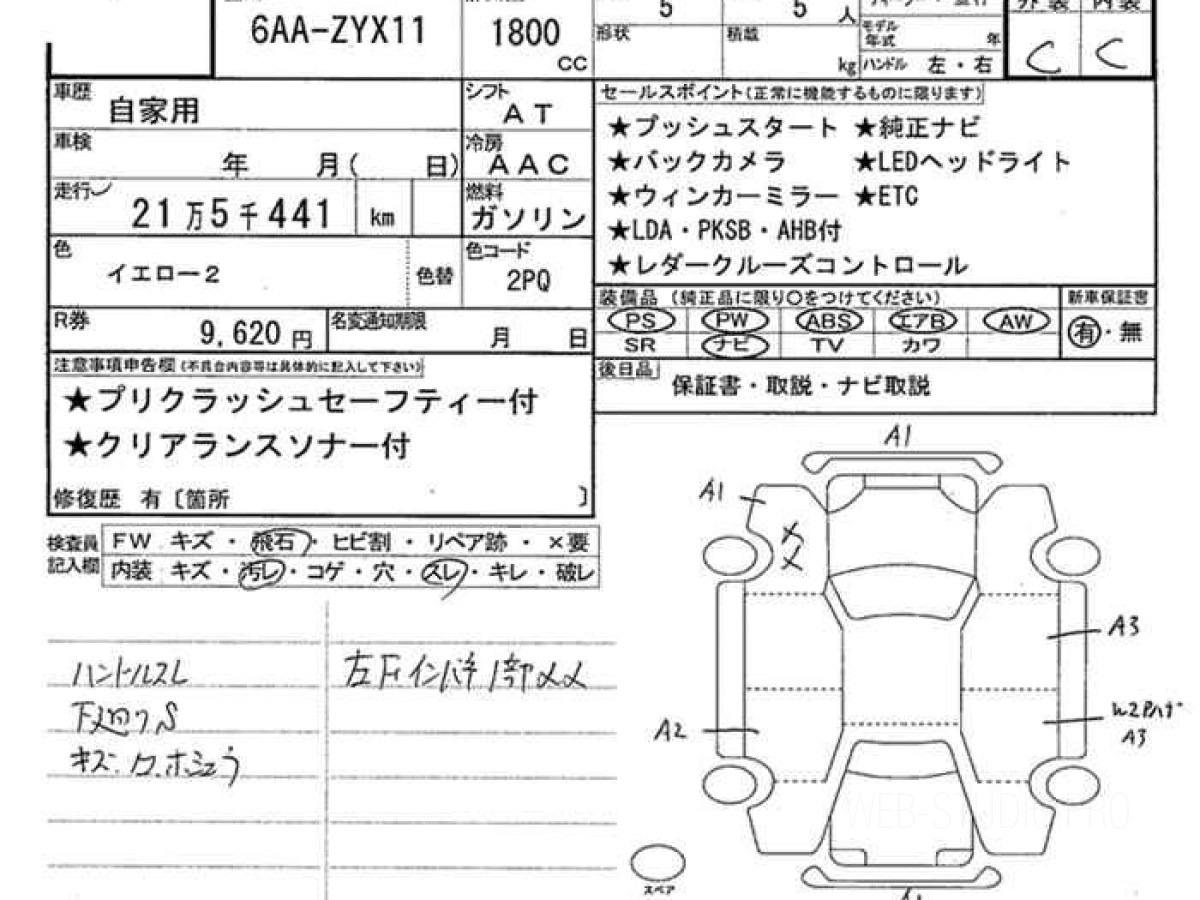 6AA-ZYX11
1800
CC
5
5
人
形状
積載
kg
モデル
年式
年
ハンドル 左・右
外装 内装
C C
車歴
自家用
シフト
AT
車検
年 月( 日)
冷房
AAC
走行
21万5千441 km
燃料
ガソリン
色
イエロー2
色替
色コード
2PQ
R券
9,620 円
名変通知期限
月 日
注意事項申告欄(不具合内容等は具体的に記入して下さい)
★プリクラッシュセーフティー付
★クリアランスソナー付
修復歴 有〔箇所 〕
セールスポイント(正常に機能するものに限ります)
★プッシュスタート ★純正ナビ
★バックカメラ ★LEDヘッドライト
★ウィンカーミラー ★ETC
★LDA・PKSB・AHB付
★レダークルーズコントロール
装備品 (純正品に限り○をつけてください)
新車保証書
PS PW ABS エアB AW
有・無
SR ナビ TV カワ
後日品
保証書・取説・ナビ取説
検査員
記入欄
FW キズ・飛石・ヒビ割・リペア跡・×要
内装 キズ・汚レ・コゲ・穴・スレ・キレ・破レ
ハンドルスレ
下廻りS
A1
A1
A3
A2
A3
スペア
WEB-STUDIO.PRO